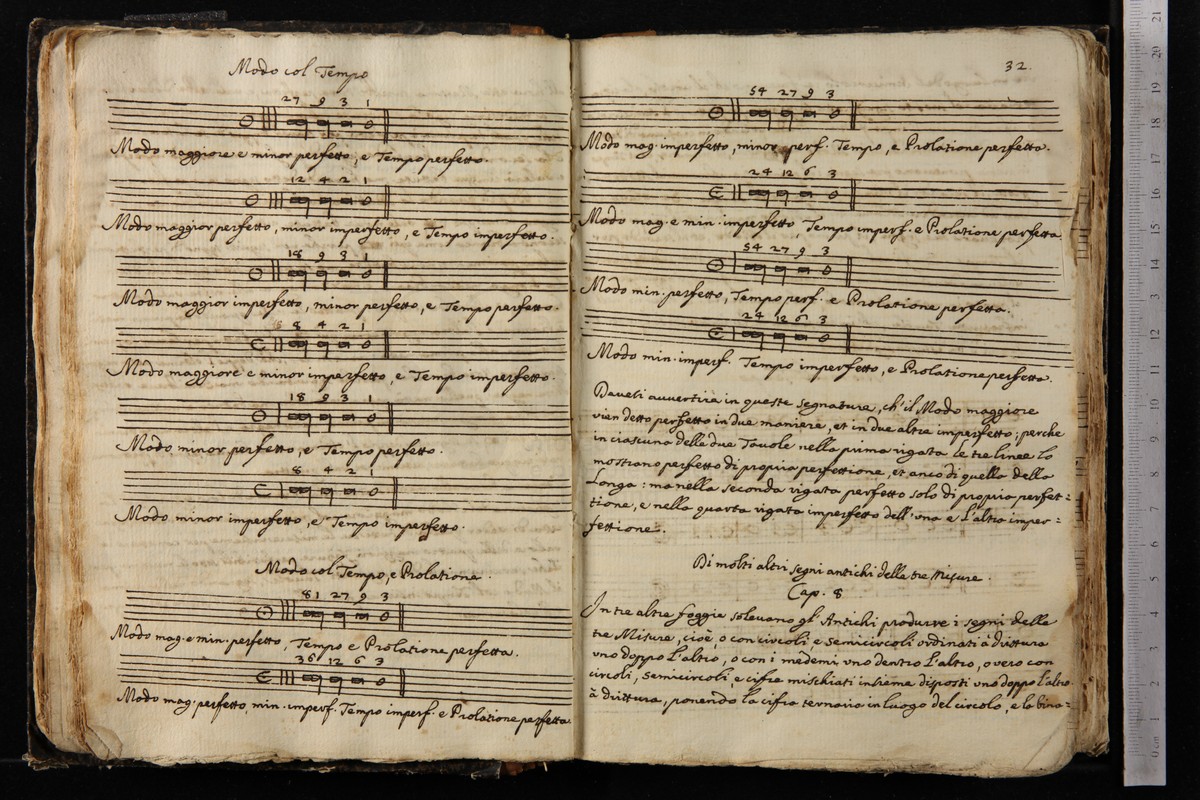 Modo col Tempo
27 9 3 1
Modo maggiore e minor perfetto, e Tempo perfetto.
12 4 2 1
Modo maggior perfetto, minor imperfetto, e Tempo imperfetto.
18 9 3 1
Modo maggior imperfetto, minor perfetto, e Tempo perfetto.
8 4 2 1
Modo maggiore e minor imperfetto, e Tempo imperfetto.
18 9 3 1
Modo minor perfetto, e Tempo perfetto.
8 4 2 1
Modo minor imperfetto, e Tempo imperfetto.
Modo col Tempo, e Prolatione.
81 27 9 3
Modo mag. e min. perfetto, Tempo e Prolatione perfetta.
36 12 6 3
Modo mag. perfetto, min. imperf. Tempo imperf. e Prolatione perfetta.
32.
54 27 9 3
Modo mag. imperfetto, minor perf. Tempo, e Prolatione perfetta.
24 12 6 3
Modo mag. e min. imperfetto, Tempo imperf. e Prolatione perfetta.
54 27 9 3
Modo min. perfetto, Tempo perf. e Prolatione perfetta.
24 12 6 3
Modo min. imperf. Tempo imperfetto, e Prolatione perfetta.
Davesi auvertire in queste segnature, ch'il Modo maggiore
vien detto perfetto in due maniere, et in due altre imperfetto; perche
in ciascuna delle due Tavole nella prima rigata le tre linee lo
mostrano perfetto di propria perfettione, et anco di quella della
Longa: ma nella seconda rigata perfetto solo di propria perfet=
tione, e nella quarta rigata imperfetto dell'una e l'altra imper=
fettione.
Di molti altri segni antichi della tre Misure.
Cap. 8
In tre altre foggie solevano gl'Antichi produrre i segni delle
tre Misure, cioè, o con circoli, e semicircoli ordinati à drittura
uno doppo l'altro, o con i medemi uno dentro l'altro, o vero con
circoli, semicircoli, e cifre mischiati insieme disposti uno doppo l'altro
à drittura, ponendo la cifra ternaria in luogo del circolo, e la bina=